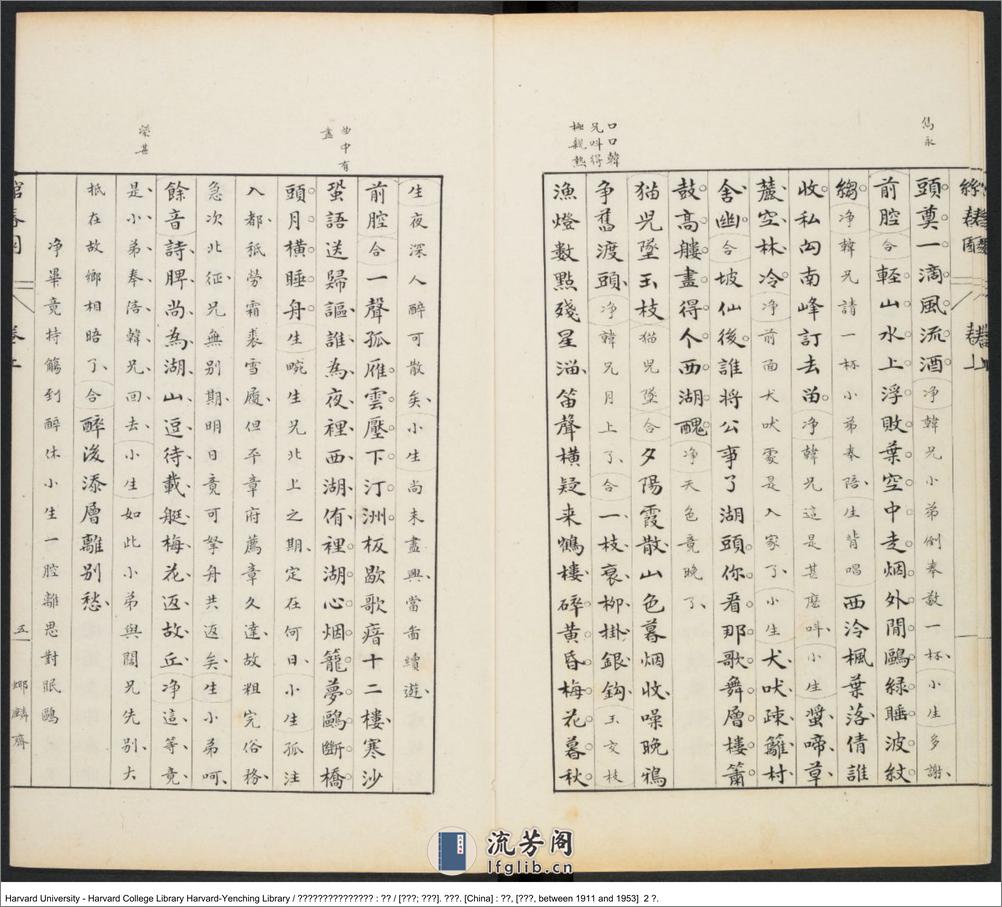 雋永
口口韓
兄呌得
極親熱
頭奠一滴風流酒淨韓兄小弟倒奉敬一杯小生多謝
前腔合輕山水上浮敗葉空中走烟外閒鷗綠睡波紋
縐淨韓兄請一杯小弟奉陪生背唱西泠楓葉落倩誰
收私勾南峰訂去畱淨韓兄這是甚麽呌小生螿啼草
蘆空林冷淨前面犬吠處是人家了小生犬吠疎籬村
舍幽合坡仙後誰將公事了湖頭你看那歌舞層樓簫
鼓高艛畫得个西湖醜淨天色竟晚了
猫兕墜玉枝猫兕墜合夕陽霞散山色暮烟收噪晚鴉
争舊渡頭淨韓兄月上了合一枝衰柳掛銀鈎玉交枝
漁燈數點殘星溜笛聲橫疑来鶴樓碎黄昏梅花暮秋
曲中有
畫
榮甚
生夜深人醉可散矣小生尚未盡興當畱續遊
前腔合一聲孤雁雲壓下汀洲板歇歌瘖十二樓寒沙
蛩語送歸謳誰為夜裡西湖侑裡湖心烟籠夢鷗斷橋
頭月橫睡舟生晥生兄北上之期定在何日小生孤注
入都祇勞霜裘雪履但平章府薦章久達故粗完俗務
急次北征兄無别期明日竟可拏舟共返矣生小弟呵
餘音詩脾尚為湖山逗待載艇梅花返故丘淨這等竟
是小弟奉洛韓兄回去小生如此小弟與闊兄先别大
抵在故鄉相晤了合醉後添層離别愁
淨畢竟持觴到醉休小生一腔離思對眠鷗
卷上
五
流芳阁
lfglib.cn
Harvard University - Harvard College Library Harvard-Yenching Library / ??????????????? : ?? / [???; ???]. ???. [China] : ??, [???, between 1911 and 1953] 2 ?.